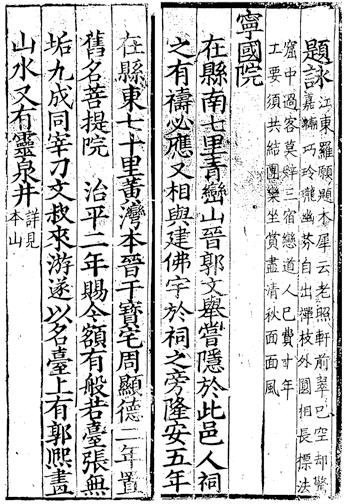 題詠
江東羅願題木犀云老照軒前翠已空却驚
嘉巧玲瓏幽芬自出彈枝外圓相長標法
窟中過客莫辭三宿戀道人已費十年
工要須共結團欒坐賞盡清秋面面風
寧國院
在縣南七里青巒山晉郭文舉嘗隱於此邑人祠
之有禱必應又相與建佛宇於祠之旁隆安五年
在縣東七十里黃灣本晉干寶宅周顯德二年置
舊名菩提院 治平二年賜今額有般若臺張無
垢九成同宰刀文叔來游遂以名臺上有郭熙畫
山水又有靈泉井詳見本山